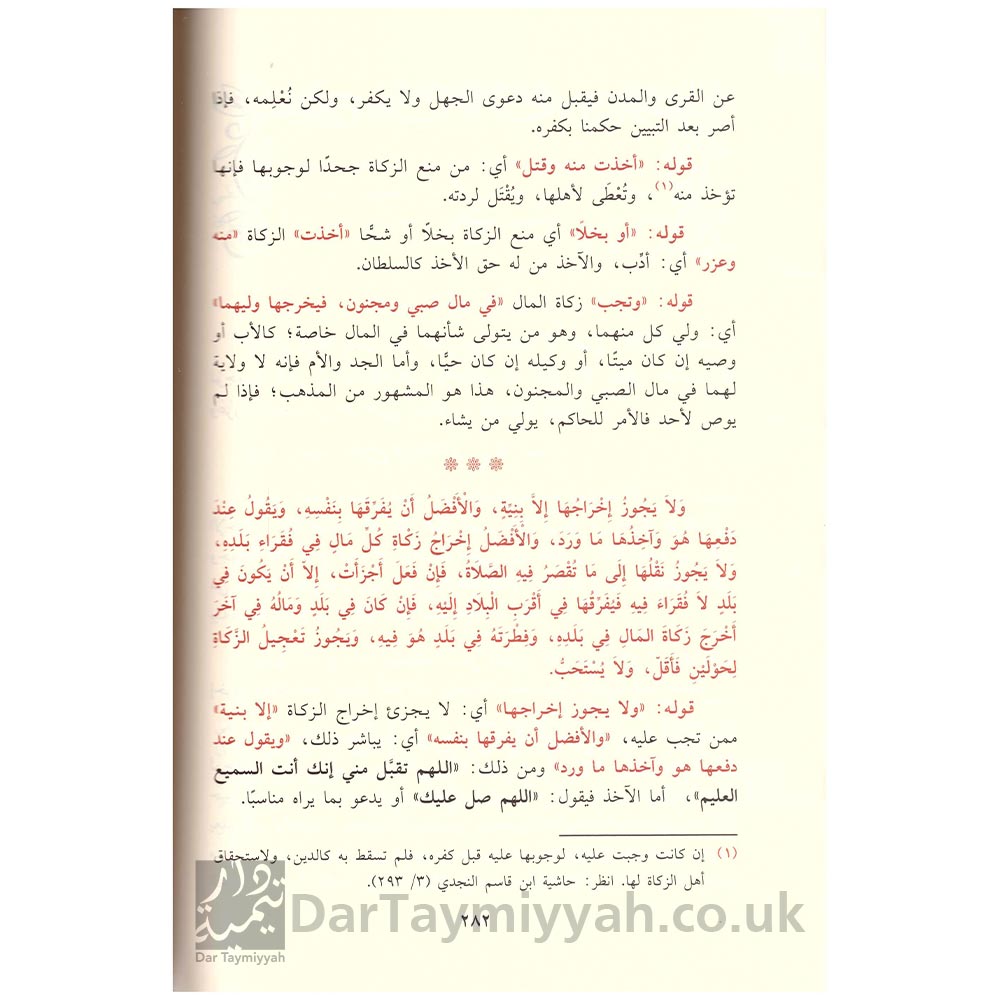 عن القرى والمدن فيقبل منه دعوى الجهل ولا يكفر، ولكن نُعْلِمه، فإذا
أصر بعد التبيين حكمنا بكفره.
قوله: «أخذت منه وقتل» أي: من منع الزكاة جحدًا لوجوبها فإنها
تؤخذ منه(١)، وتُعْطَى لأهلها، ويُقْتَل لردته.
قوله: «أو بخلًا» أي منع الزكاة بخلًا أو شحًّا «أخذت» الزكاة «منه
وعزر» أي: أدِّب، والآخذ من له حق الأخذ كالسلطان.
قوله: «وتجب» زكاة المال «في مال صبي ومجنون، فيخرجها وليهما»
أي: ولي كل منهما، وهو من يتولى شأنهما في المال خاصة؛ كالأب أو
وصيه إن كان ميتًا، أو وكيله إن كان حيًّا، وأما الجد والأم فإنه لا ولاية
لهما في مال الصبي والمجنون، هذا هو المشهور من المذهب؛ فإذا لم
يوص لأحد فالأمر للحاكم، يولي من يشاء.
وَلاَ يَجُوزُ إِخْرَاجُهَا إِلاَّ بِنِيَّةٍ، وَالْأَفْضَلُ أَنْ يُفَرِّقَهَا بِنَفْسِهِ، وَيَقُولُ عِنْدَ
دَفْعِهَا هُوَ وَآخِذُهَا مَا وَرَدَ، وَالْأَفْضَلُ إِخْرَاجُ زَكَاةِ كُلِّ مَالٍ فِي فُقَرَاءِ بَلَدِهِ،
وَلاَ يَجُوزُ نَقْلُهَا إِلَى مَا تُقْصَرُ فِيهِ الصَّلاَةُ، فَإِنْ فَعَلَ أَجْزَأَتْ، إِلاَّ أَنْ يَكُونَ فِي
بَلَدٍ لاَ فُقَرَاءَ فِيهِ فَيُفَرِّقُهَا فِي أَقْرَبِ الْبِلَادِ إِلَيْهِ، فَإِنْ كَانَ فِي بَلَدٍ وَمَالُهُ فِي آخَرَ
أَخْرَجَ زَكَاةَ المَالِ فِي بَلَدِهِ، وَفِطْرَتَهُ فِي بَلَدٍ هُوَ فِيهِ، وَيَجُوزُ تَعْجِيلُ الزَّكَاةِ
لِحَوْلَيْنِ فَأَقَلَّ، وَلاَ يُسْتَحَبُّ.
قوله: «ولا يجوز إخراجها» أي: لا يجزئ إخراج الزكاة «إلا بنية»
ممن تجب عليه، «والأفضل أن يفرقها بنفسه» أي: يباشر ذلك، «ويقول عند
دفعها هو وآخذها ما ورد» ومن ذلك: «اللهم تقبَّل مني إنك أنت السميع
العليم»، أما الآخذ فيقول: «اللهم صل عليك» أو يدعو بما يراه مناسبًا.
(١) إن كانت وجبت عليه، لوجوبها عليه قبل كفره، فلم تسقط به كالدين، ولاستحقاق
أهل الزكاة لها. انظر: حاشية ابن قاسم النجدي (٣/ ٢٩٣).
٢٨٢
دار
تيمية
Dar Taymiyyah
DarTaymiyyah.co.uk